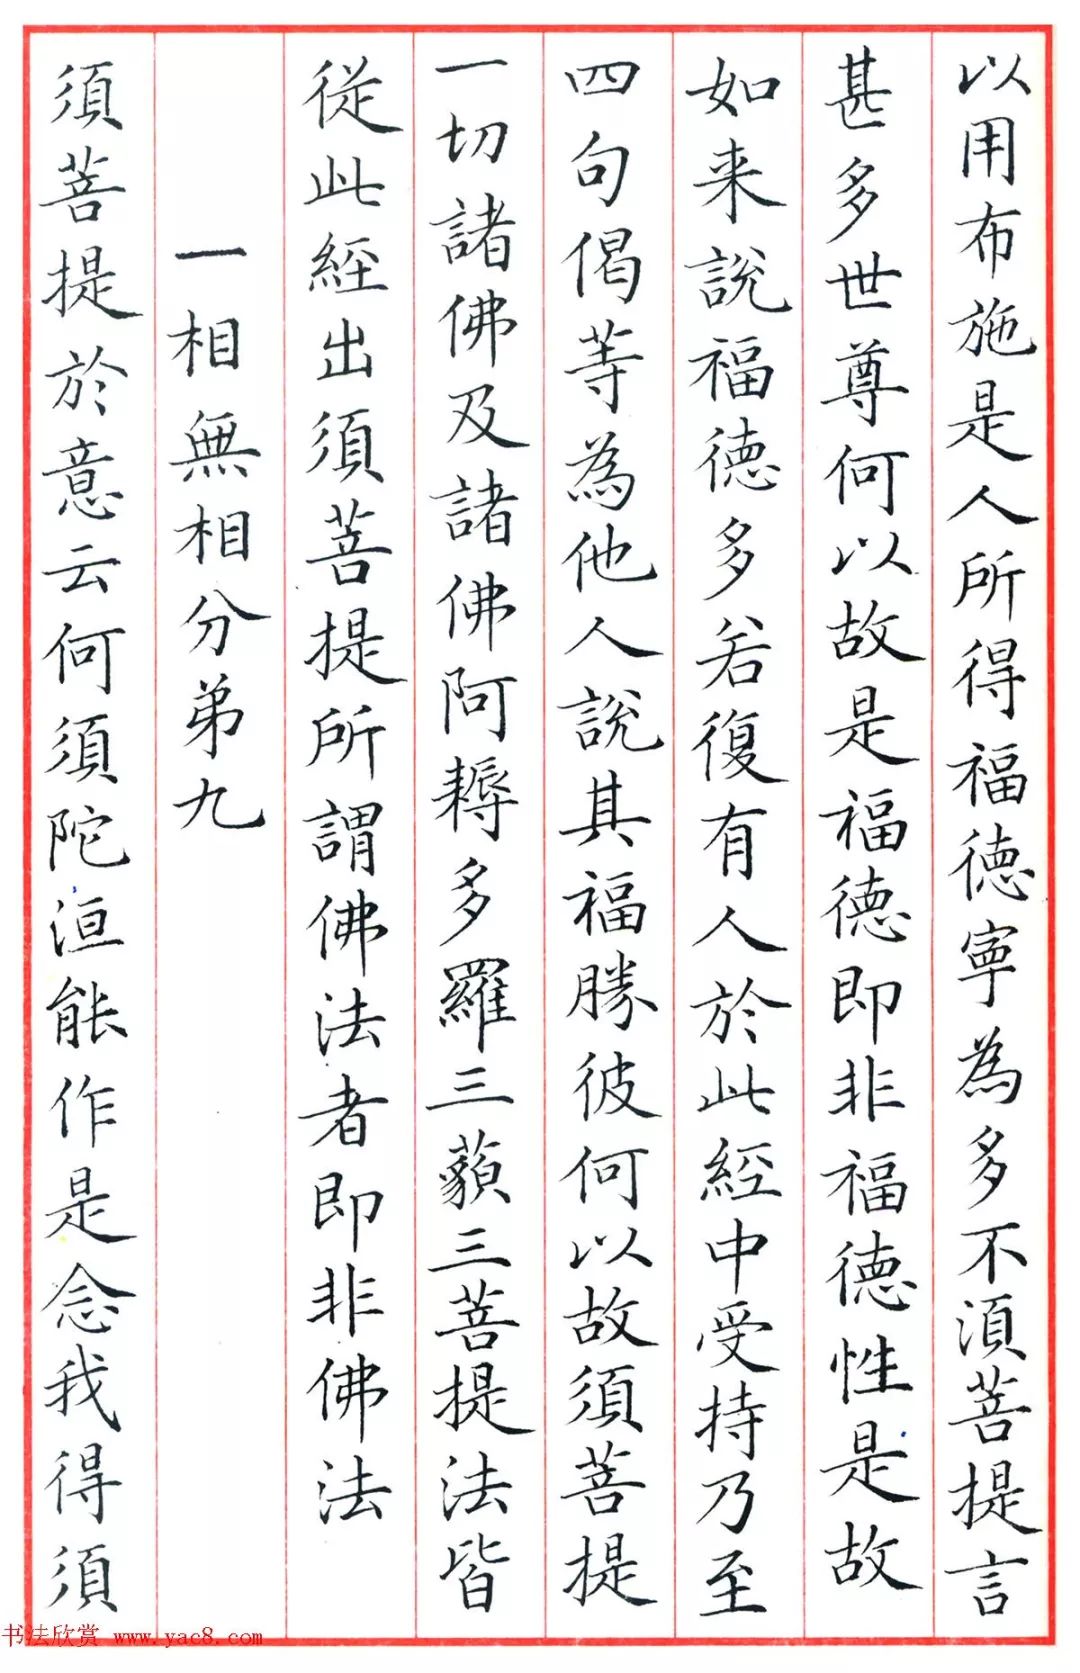 以用布施是人所得福德寜為多不湏菩提言
甚多世尊何以故是福德即非福德性是故
如来說福德多若復有人於此經中受持乃至
四句偈等為他人說其福勝彼何以故須菩提
一切諸佛及諸佛阿耨多羅三藐三菩提法皆
從此經出須菩提所謂佛法者即非佛法
一相無相分弟九
須菩提於意云何須陀洹能作是念我得須
书法欣赏 www.yac8.com